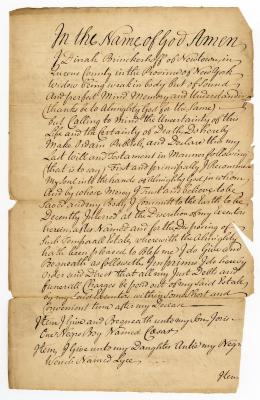 In the Name of God Amen
I Dinah Brinckerhoff of Newtown, in
Queens County in the Province of New York
Widow being weak in body But of Sound
and perfect Mind Memory and Understanding
Thanks be to Almighty God for the Same
But Calling to Mind the Uncertainty of this
Life and the Certainty of Death Do hereby
Make Ordain Publish and Declare this my
Last Will and Testament in Manner following
that is to say First and principally I Recommend
My Soul into the hands of Almighty God in whom
And by whose Mercy I Trust and believe to be
Saved and my Body I Commit to the Earth to be
Decently Interred at the Discretion of my Executors
herein after Named and for the Disposing of
Such Temporal Estate wherewith the Almighty
hath been pleased to bless me I do give and
Bequeath as followeth Imprimis I do hereby
order and Direct that all my Just Debts and
funerall Charges be paid out of my Said Estate
by my Said Executors within Some Short and
Convenient time after my Decease
Item I Give and Bequeath unto my Son Joris
One Negro Boy Named Cæsar
Item, I Give unto my Daughter Antie my Negro
Wench Named
Item